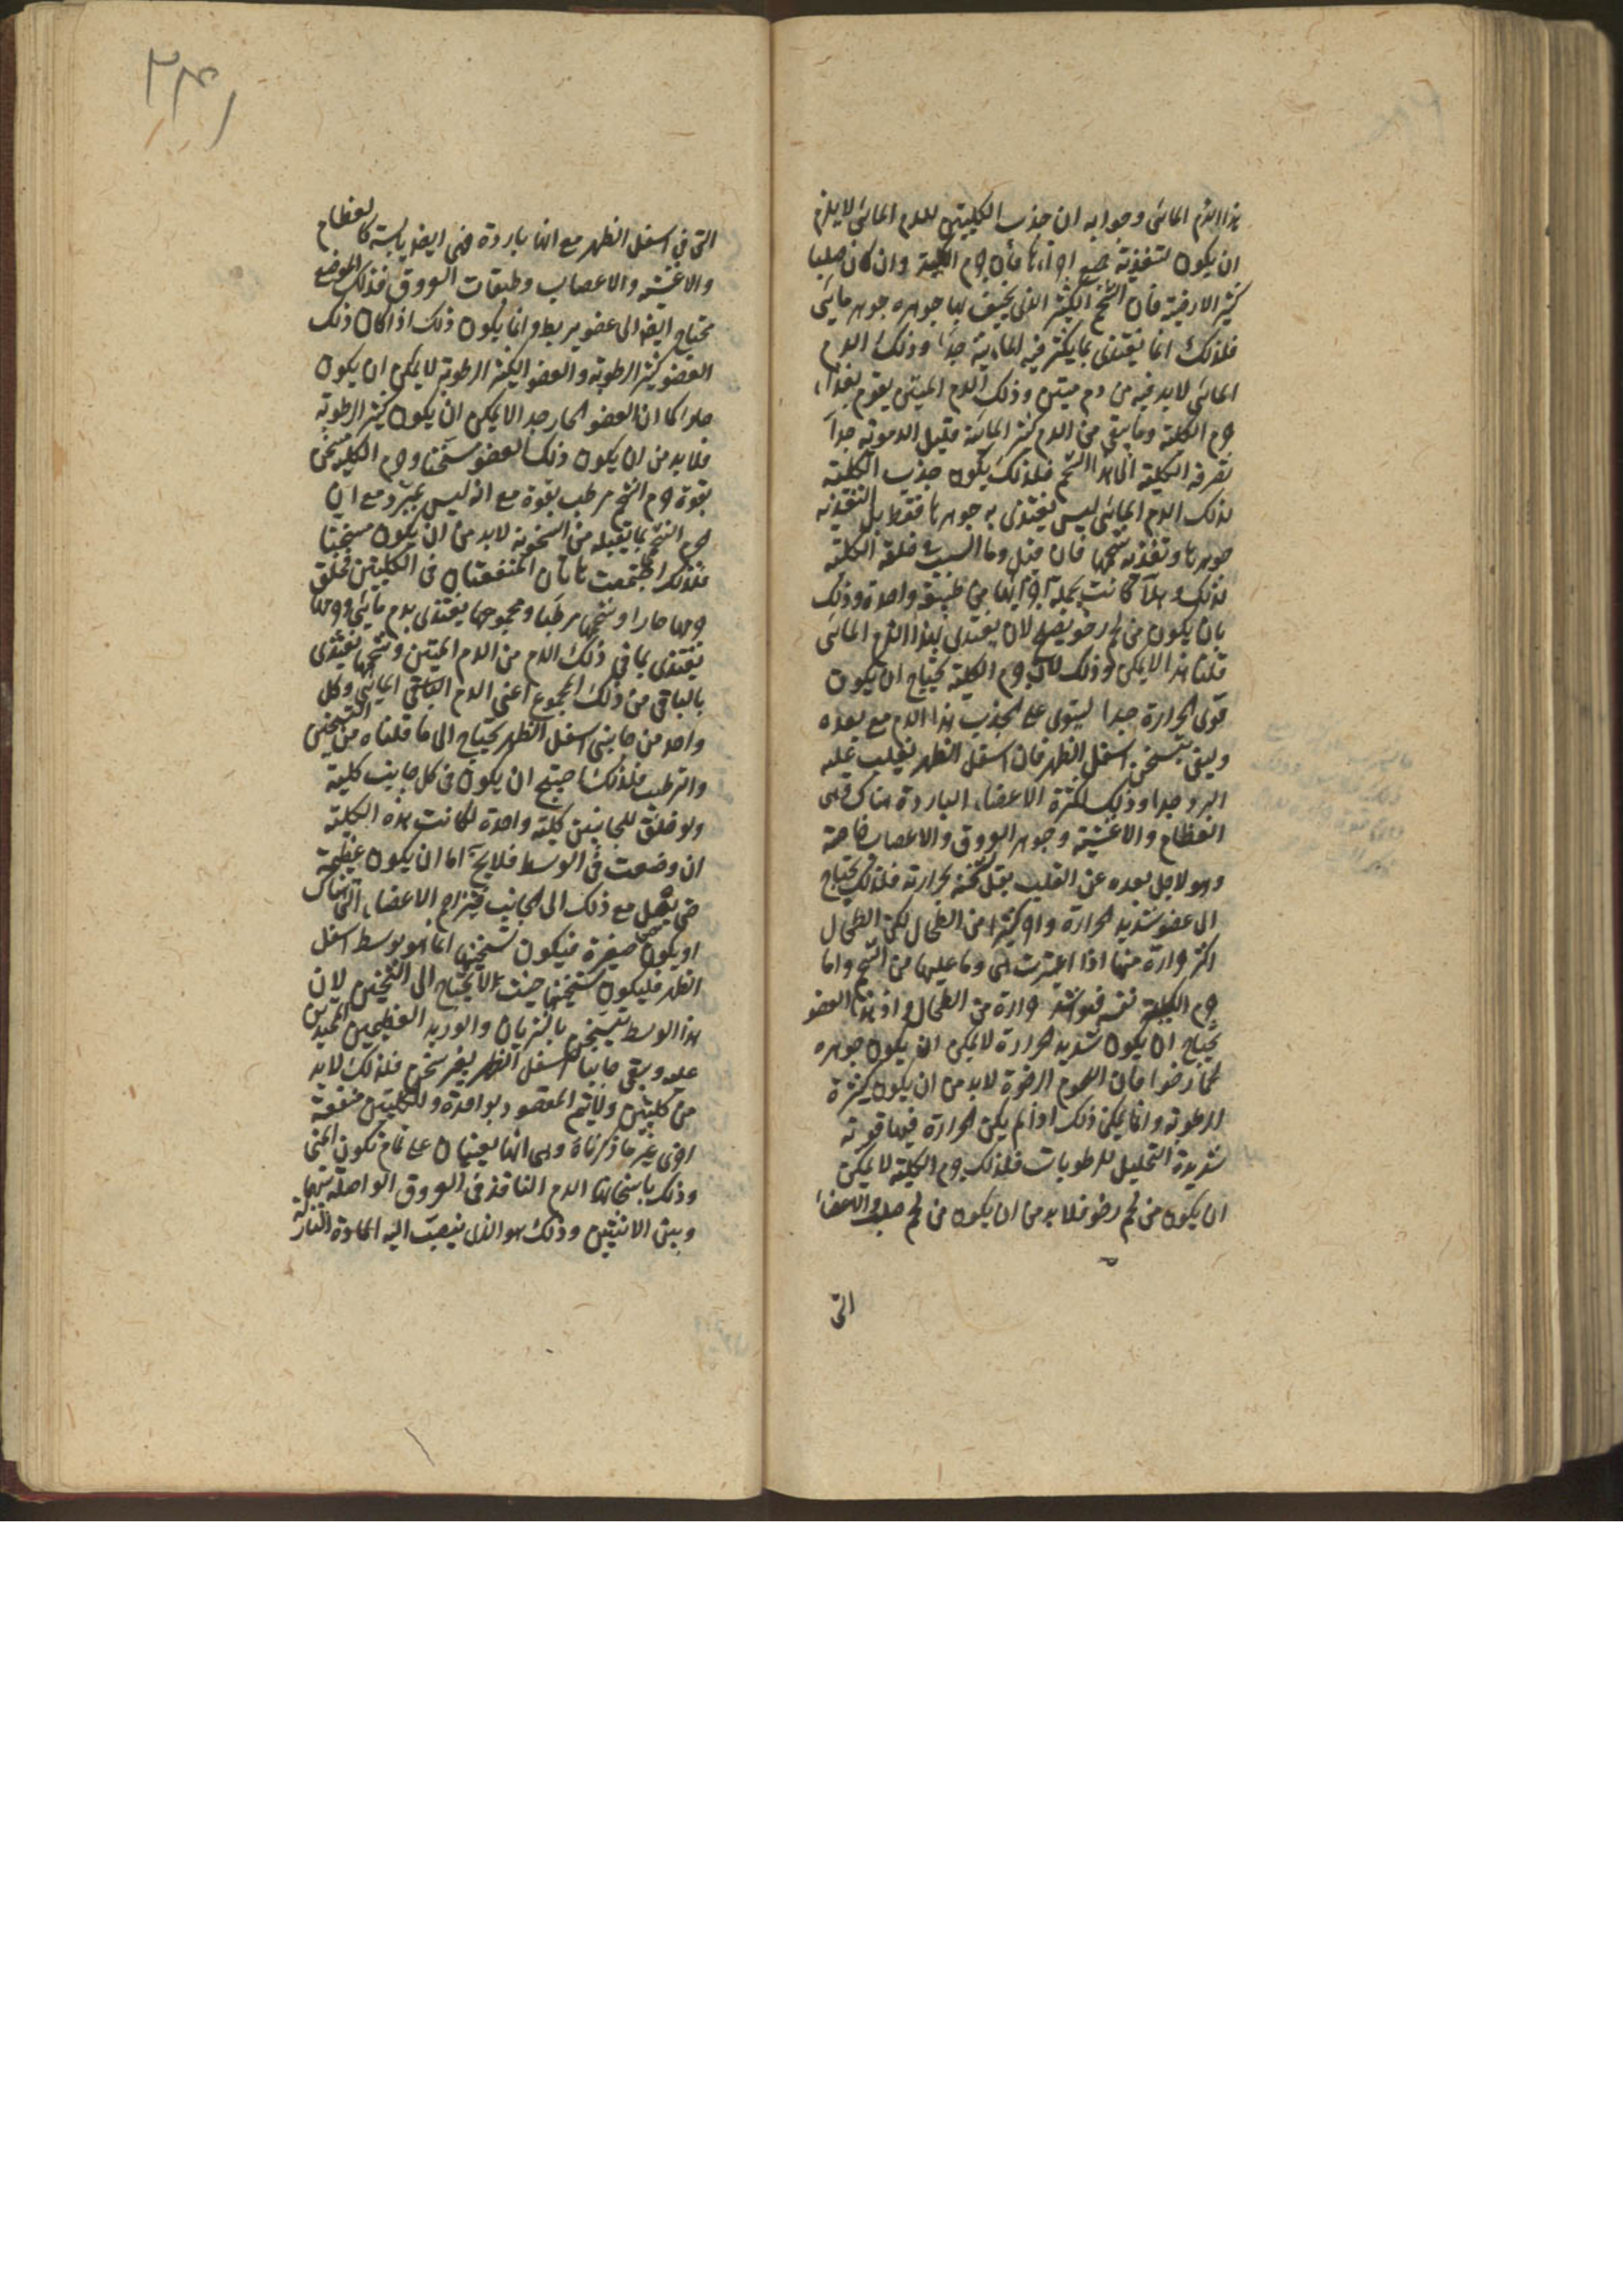 هذا الدم المائى وجوابه ان جذب الكليتين للدم المائى لا يلزم
ان يكون لتغذية جميع اجزائها فأن جرم الكلية وان كان صلبا
كثير الارضية فأن الشحم الكثير الذى يحيف بها جوهره جوهر مايى
فلذلك انما يغتذى بما يكثر فيه المادية جدا وذلك الدم
المائى لابد فيه من دم ميتن وذلك الدم الميتن يقوم بغذاء
جرم الكلية وما يبقى من الدم كثير المائية قليل الدموية جداً
تصرفه الكلية الى هذا الشحم فلذلك يكون جذب الكلية
لذلك الدم المائى ليس ليغتذى به جوهرها فقط بل لتغذية
جوهرها وتغذية شحمها فان قيل وما السبب فى خلقة الكلية
كذلك وهلا كانت بجملة اجزائها من طبيعة واحدة وذلك
بان يكون من لحم رخو يصلح لان يغتذى بهذا الدم المائى
قلنا هذا لا يمكن وذلك لان جرم الكلية يحتاج ان يكون
قوى الحرارة جدا ليقوى على جذب هذا الدم مع بعده
وليفى بتسخين اسفل الظهر فان اسفل الظهر يغلب عليه
البرد جدا وذلك لكثرة الاعضاء الباردة هناك وهى
العظام والاغشية وجوهر العروق والاعصاب خاصة
وهو لاجل بعده عن القلب يقل تسخنه بحرارته فلذلك يحتاج
الى عضو شديد الحرارة واكثر من الطحال لكن الطحال
اكثر حرارة منها اذا اعتبرت هى وما عليها من الشحم واما
جرم الكلية نفسه فهو اشد حرارة من الطحال واذ هذا العضو
يحتاج ان يكون شديد الحرارة لا يمكن ان يكون جوهره
لحما رخوا فان اللحوم الرخوة لابد من ان يكون كثيرة
الرطوبة وانما يمكن ذلك اذا لم يكن الحرارة فيها قوية
شديدة التحليل للرطوبات فلذلك جرم الكلية لا يمكن
ان يكون من لحم رخو فلابد من ان يكون من لحم صلب والاعضاء
التى
٢٣١
التى فى اسفل الظهر مع انها باردة فهى ايضا يابسة كالعظام
والاغشية والاعصاب وطبقات العروق فذلك الموضع
محتاج ايضا الى عضو يرطبه وانما يكون ذلك اذا كان ذلك
العضو كثير الرطوبة والعضو الكثير الرطوبة لا يمكن ان يكون
حارا كما ان العضو الحار جدا لا يمكن ان يكون كثير الرطوبة
فلابد من ان يكون ذلك العضو مسخنا وجرم الكلية مسخن
بقوة وجرم الشحم مرطب بقوة مع انه ليس بمبرد مع ان
جرم الشحم بما يقبله من السخونة لابد من ان يكون مسخنا
فلذلك اجتمعت هاتان المنفعتان فى الكليتين فخلق
جرمها حارا وشحمها مرطبا ومجموعها يغتذى بدم مائى وجرمها
يغتذى بما فى ذلك الدم من الدم الميتن وشحمها يغتذى
بالباقى من ذلك المجموع اعنى الدم الباقى المائى وكل
واحد من جانبى اسفل الظهر يحتاج الى ما قلناه من التسخين
والترطيب فلذلك احتيج ان يكون فى كل جانب كلية
ولو خلق للجانبين كلية واحدة لكانت هذه الكلية
ان وضعت فى الوسط فلا يخ اما ان يكون عظيمة
حتى يصل مع ذلك الى الجانبين فيزاحم الاعضاء التى هناك
او يكون صغيرة فيكون تسخينها انما هو بوسط اسفل
الظهر فليكون تسخينها حيث لا يحتاج الى التسخين لان
هذا الوسط يتسخن بالشريان والوريد العظيمين الممتدين
عليه ويبقى جانبا اسفل الظهر بغير مسخن فلذلك لابد
من كليتين ولا يتم المقصود بواحدة وللكليتين منفعة
اخرى غير ما ذكرناه وهى انها يعينان على تمام تكون المنى
وذلك باسخانها الدم النافذ فى العروق الواصلة بينها
وبين الانثيين وذلك هو الذى ينصب اليه المادة النازلة